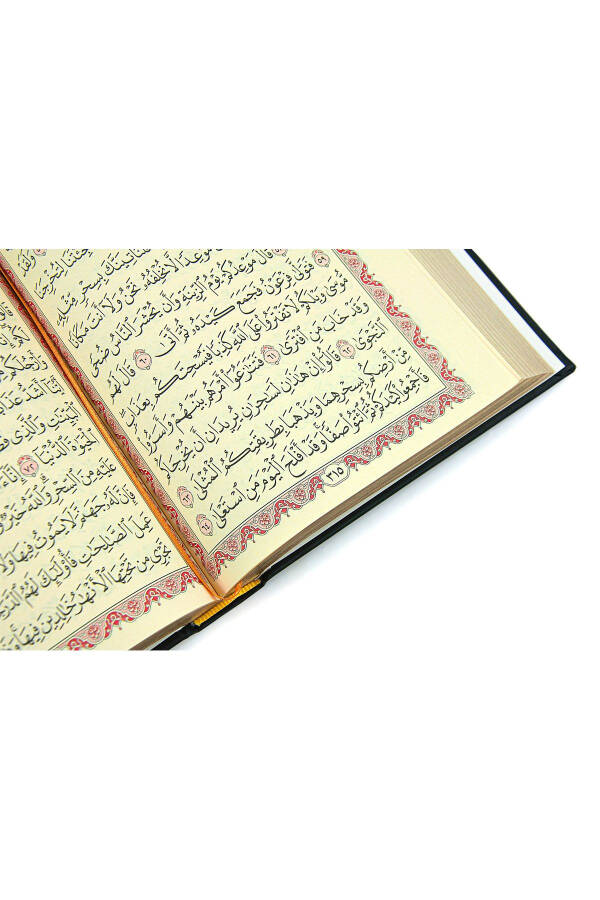 بِسِحْرٍ مِّثْلِهِ
مَوْعِدًا لَّا نُخْلِفُهُ نَحْنُ وَلَا أَنتَ مَكَانًا
قَالَ مَوْعِدُكُمْ يَوْمُ الزِّينَةِ وَأَن يُحْشَرَ النَّاسُ ضُحًى ٥٩
فَتَوَلَّىٰ فِرْعَوْنُ فَجَمَعَ كَيْدَهُ ثُمَّ أَتَىٰ ٦٠ قَالَ لَهُم
مُّوسَىٰ وَيْلَكُمْ لَا تَفْتَرُوا عَلَى اللَّهِ كَذِبًا فَيُسْحِتَكُم بِعَذَابٍ
وَقَدْ خَابَ مَنِ افْتَرَىٰ ٦١ فَتَنَازَعُوا أَمْرَهُم بَيْنَهُمْ وَأَسَرُّوا
النَّجْوَىٰ ٦٢ قَالُوا إِنْ هَٰذَانِ لَسَاحِرَانِ يُرِيدَانِ أَن يُخْرِجَاكُم
مِّنْ أَرْضِكُم بِسِحْرِهِمَا وَيَذْهَبَا بِطَرِيقَتِكُمُ الْمُثْلَىٰ ٦٣
فَأَجْمِعُوا كَيْدَكُمْ ثُمَّ ائْتُوا صَفًّا وَقَدْ أَفْلَحَ الْيَوْمَ مَنِ اسْتَعْلَىٰ ٦٤
٣١٥
أَشَدُّ عَذَابًا
الْبَيِّنَاتِ وَالَّذِي
الْحَيَاةَ الدُّنْيَا ٧٢ إِنَّا
عَلَيْهِ مِنَ السِّحْرِ وَاللَّهُ خَيْرٌ
فَإِنَّ لَهُ جَهَنَّمَ لَا يَمُوتُ فِيهَا وَلَا
عَمِلَ الصَّالِحَاتِ فَأُولَٰئِكَ لَهُمُ
تَجْرِي مِن تَحْتِهَا الْأَنْهَارُ خَالِدِينَ فِيهَا